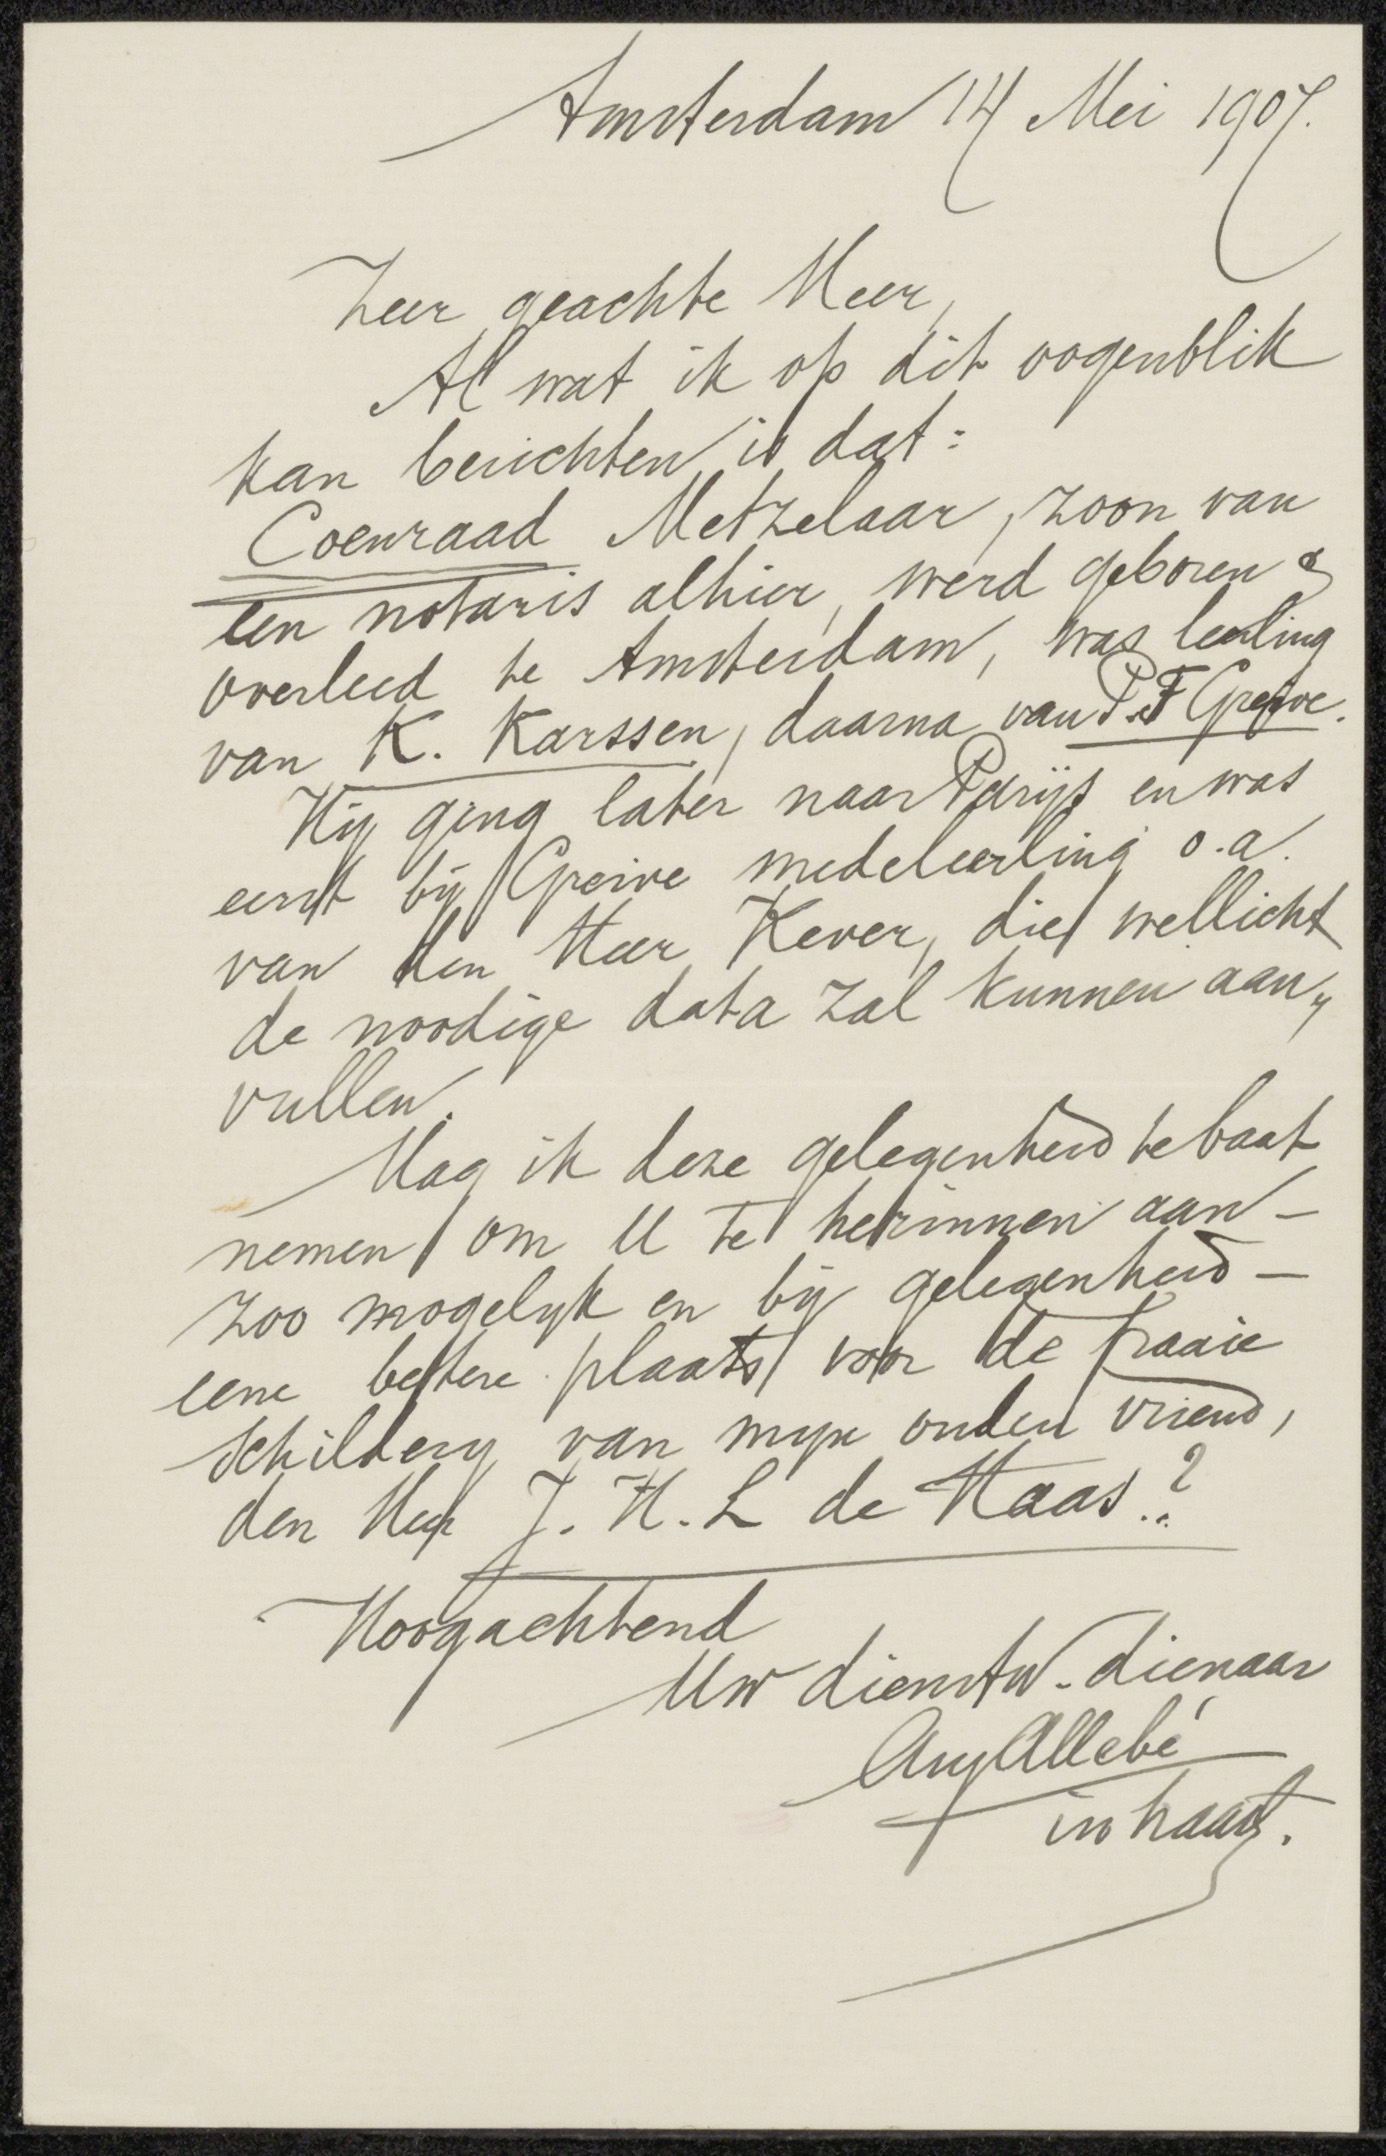 Amsterdam 14 Mei 1907.
Zeer geachte Heer,
Al wat ik op dit oogenblik
kan berichten is dat:
Coenraad Metzelaar, zoon van
een notaris alhier, werd geboren &
overleed te Amsterdam, was leerling
van K. Karssen, daarna van P.F Greive.
Hij ging later naar Parijs en was
eerst bij Greive medeleerling o.a.
van den Heer Kever, die wellicht
de noodige data zal kunnen aan„
vullen.
Mag ik deze gelegenheid te baat
nemen om U te herinnen aan –
zoo mogelyk en bij gelegenheid –
eene betere plaats voor de fraaie
schildery van myn ouden vriend,
den Heer J. H. L de Haas.?
Hoogachtend
Uw dienstw. dienaar
Aug Allebé
in haast.